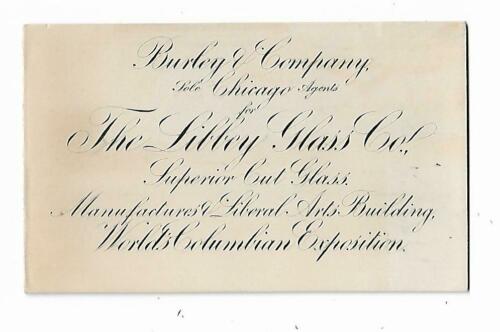 Burley & Company,
Sole Chicago Agents
for
The Libbey Glass Co.,
Superior Cut Glass.
Manufactures & Liberal Arts Building,
World's Columbian Exposition.